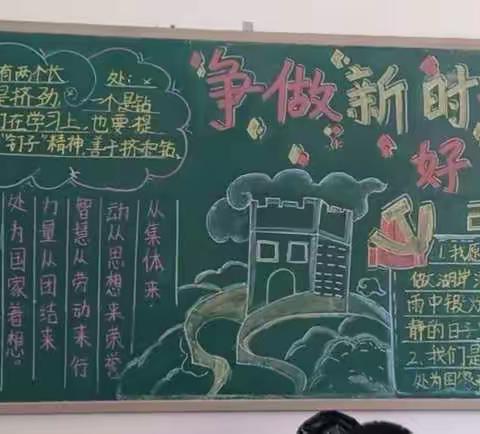 争做新时
好
有两个长
处：
是挤劲，
一个是钻
们在学习上，也要提
"钉子"精神，善于挤和钻。
从集体来。
动从思想来荣誉
智慧从劳动来行
力量从团结来
处为国家着想。
1.我愿
做湖岸
雨中
静的日子
2.我们是
处为国家